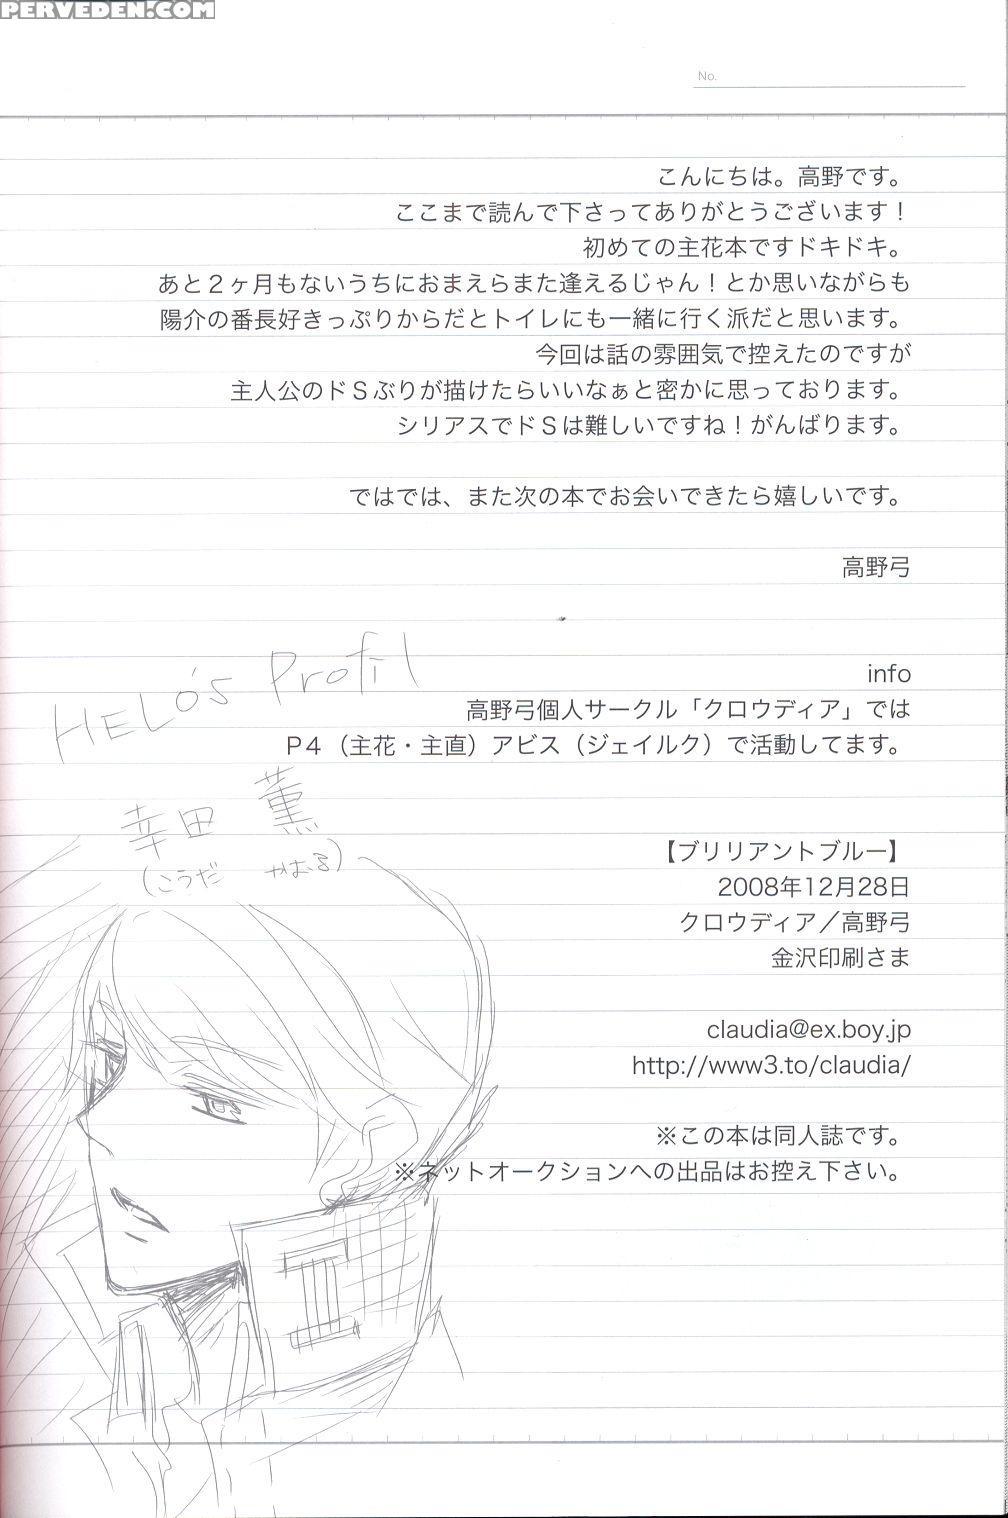 PERVEDEN.COM
No.
こんにちは。高野です。
ここまで読んで下さってありがとうございます！
初めての主花本ですドキドキ。
あと２ヶ月もないうちにおまえらまた逢えるじゃん！とか思いながらも
陽介の番長好きっぷりからだとトイレにも一緒に行く派だと思います。
今回は話の雰囲気で控えたのですが
主人公のドＳぶりが描けたらいいなぁと密かに思っております。
シリアスでドＳは難しいですね！がんばります。
ではでは、また次の本でお会いできたら嬉しいです。
高野弓
HELO's Profil
info
高野弓個人サークル「クロウディア」では
P４（主花・主直）アビス（ジェイルク）で活動してます。
幸田 薫
(こうだ かおる)
【ブリリアントブルー】
2008年12月28日
クロウディア／高野弓
金沢印刷さま
claudia@ex.boy.jp
http://www3.to/claudia/
※この本は同人誌です。
※ネットオークションへの出品はお控え下さい。